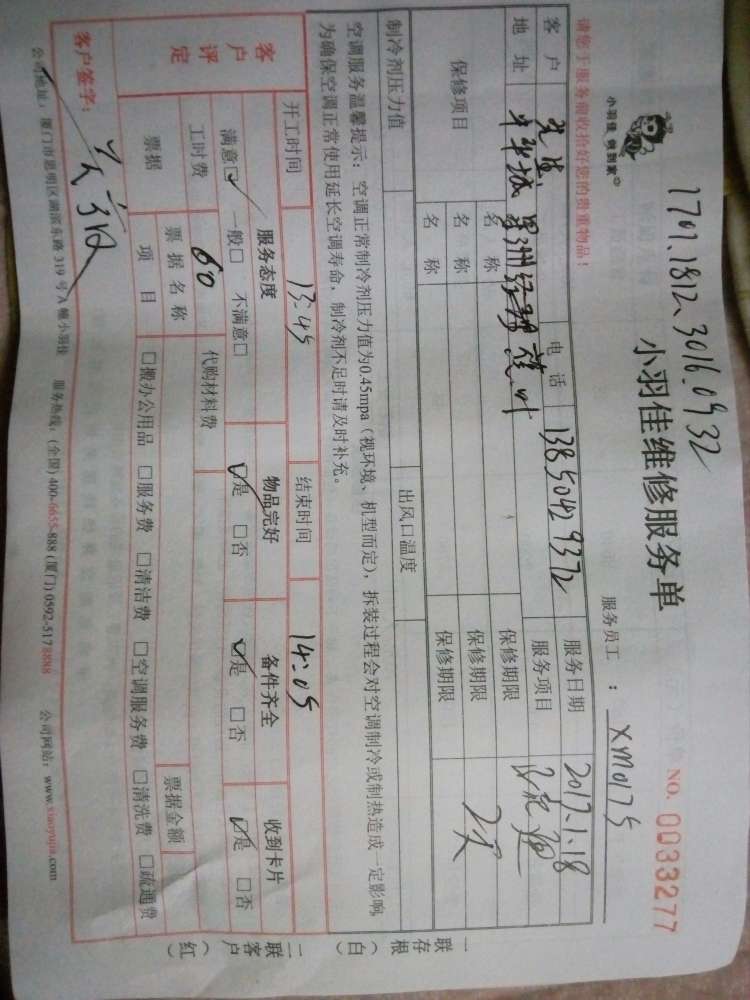 1701.1812.3016.0932
小羽佳 得到家
小羽佳维修服务单
NO. 0033277
服务员工 : xm0175
请您于服务前收拾好您的贵重物品!
客户 先生 电话 13850429372 服务日期 2017.1.18
地址 服务项目
保修项目 名称 保修期限
名称 保修期限
名称 保修期限
制冷剂压力值 出风口温度
空调服务温馨提示: 空调正常制冷剂压力值为0.45mpa (视环境、机型而定), 拆装过程会对空调制冷或制热造成一定影响,
为确保空调正常使用延长空调寿命, 制冷剂不足时请及时补充。
开工时间 13:45 结束时间 14:05
客户评定 服务态度 物品完好 备件齐全 收到卡片
满意□ 一般□ 不满意□ □是 □否 □是 □否 □是 □否
工时费 60 代购材料费
票据 票据名称 票据金额
项目 □搬办公用品 □服务费 □清洁费 □空调服务费 □清洗费 □疏通费
客户签字:
公司地址: 厦门市思明区湖滨东路 319 号A幢小羽佳 服务热线: (全国) 400-6655-888 (厦门) 0592-5178888 公司网站: www.xiaoyujia.com
一联存根(白)
二联客户(红)